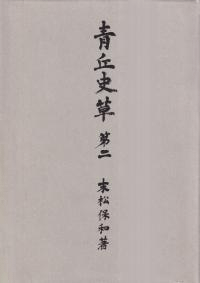 青丘史草 第二
末松保和著